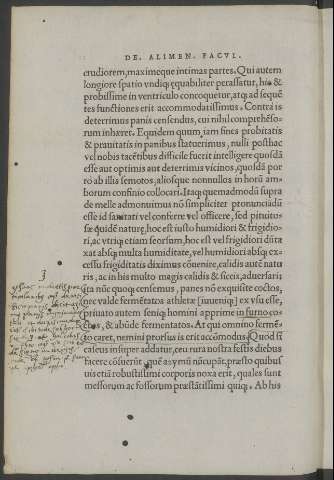 DE ALIMEN. FACVL.
crudiorem, maximeque intimas partes. Qui autem
longiore spatio vndiq; æquabiliter perassatur, his &
probissime in ventriculo concoquetur, atq; ad sequē
tes functiones erit accommodatissimus. Contra is
deterrimus panis censendus, cui nihil comprehēso-
rum inhæret. Equidem quum iam fines probitatis
& prauitatis in panibus statuerimus, nulli posthac
vel nobis tacētibus difficile fuerit intelligere quosdā
esse aut optimis aut deterrimus vicinos, quosdā por
ro ab illis semotos, alios que nonnullos in horū am-
borum confinio collocari. Itaq; quemadmodū supra
de melle admonuimus nō simpliciter pronunciādū
esse id sanitati vel conferre vel officere, sed pituitos
sæ quidē naturæ, hoc est iusto humidiori & frigidio-
ri, ac vtriq; etiam seorsum, hoc est vel frigidiori dūta
xat absq; multa humiditate, vel humidiori absq; ex-
cessu frigiditatis diximus cōuenire, calidis autē natu
ris, ac in his multo magis calidis & siccis, aduersari:
ita nūc quoq; censemus, panes nō exquisite coctos,
nec valde fermētatos athletæ [iuueniq;] ex vsu esse,
priuato autem seniq; homini apprime in furno co-
ctos, & abūde fermentatos. At qui omnino fermē-
to caret, nemini prorsus is erit accōmodus. Quod si
caseus insuper addatur, ceu rura nostra festis diebus
facere cōsuerūt, quē azymū nūcupāt, præsto quibus
uis etiā robustissimi corporis noxa erit, quales sunt
messorum ac fossorum præstātissimi quiq;. Ab his